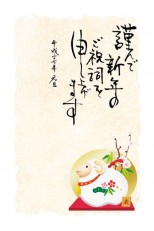 謹んで
新年の
ご祝詞を
申し上げ
ます
平成二十七年 元旦